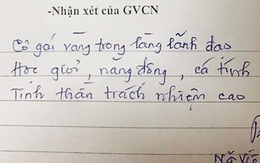 -Nhận xét của GVCN
Cô gái vàng trong làng lãnh đạo
Học giỏi, năng động, cá tính
Tinh thần trách nhiệm cao